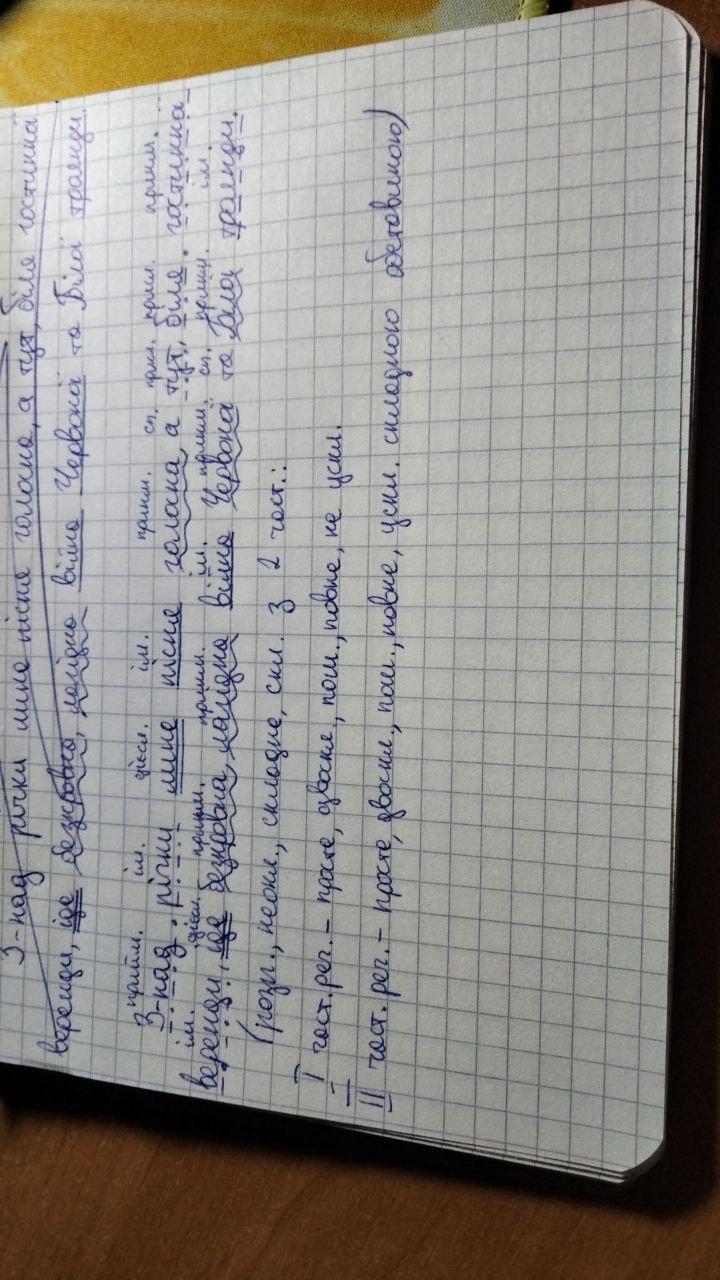 З-над річки лине пісня голосна, а тут, біля гостинна
веранди, іде безкровна, лагідна війна Червоної та Білої троянди.
прийм. ім. дієсл. ім. прикм. сп. присл. прийм. прикм.
З-над річки лине пісня голосна а тут, біля гостинна
ім. дієсл. прикм. прикм. ім. прикм. сп. прикм. ім.
веранди, іде безкровна, лагідна війна Червона та Білої троянди.
(розп., неокл., складне, скл. з 2 част.:
I част. реч. – просте, двоскл., пош., повне, не ускл.
II част. реч. – просте, двоскл., пош., повне, ускл. складною обставиною)